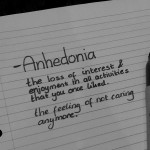 -Anhedonia
the loss of interest &
enjoyment in all activities
that you once liked.
the feeling of not caring
anymore.